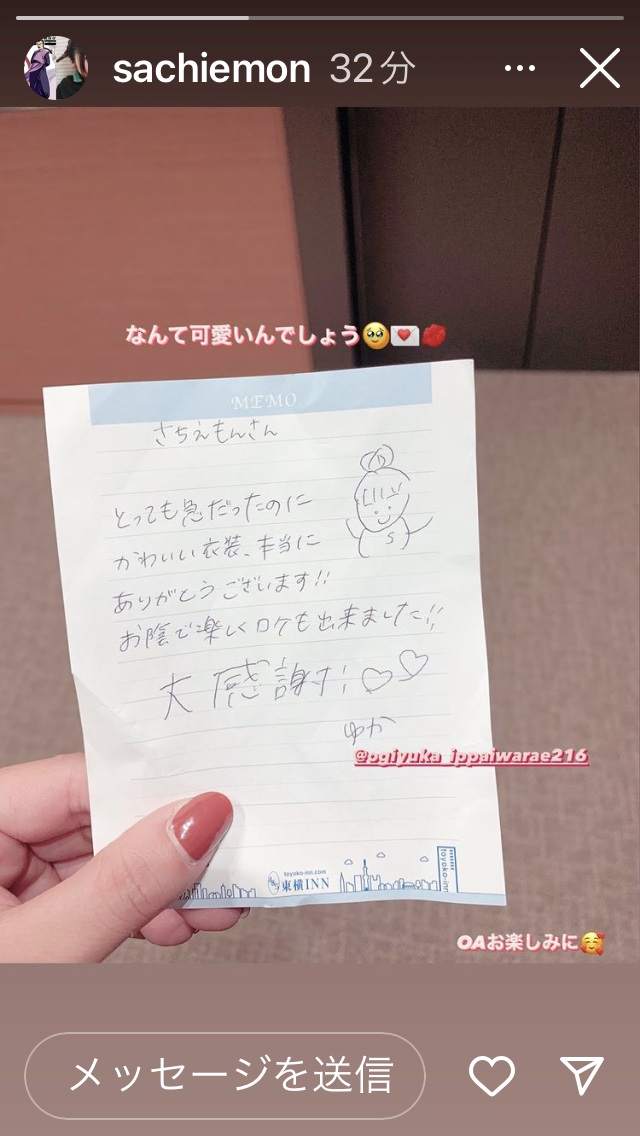 sachiemon 32分
なんて可愛いんでしょう🥹💌🌹
MEMO
さちえもんさん
とっても急だったのに
かわいい衣装、本当に
ありがとうございます!!
S
お陰で楽しくロケも出来ました!!
大感謝す!♡♡
ゆか
@ogiyuka_ippaiwarae216
toyoko-inn.com
東横INN
toyoko-inn
OAお楽しみに🥰
メッセージを送信